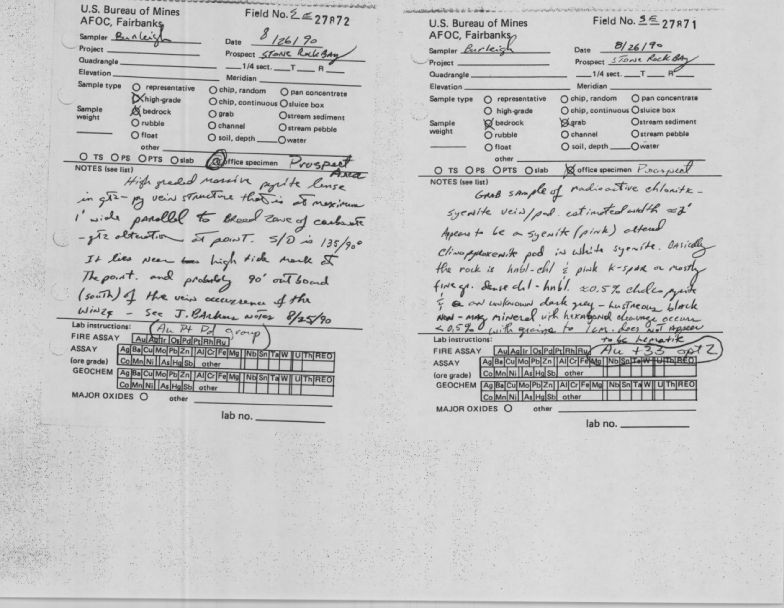 U.S. Bureau of Mines
AFOC, Fairbanks
Field No. SE 27872
Sampler Burleigh
Date 8/26/90
Project
Prospect Stone Rock Bay
Quadrangle
1/4 sect. T R
Elevation
Meridian
Sample type
representative
chip, random
pan concentrate
high-grade
chip, continuous
sluice box
Sample weight
bedrock
grab
stream sediment
rubble
channel
stream pebble
float
soil, depth
water
other
TS PS PTS slab office specimen Prospect Area
NOTES (see list)
High graded massive pyrite lense
in qtz-py vein structure that is at maximum
1' wide parallel to Broad zone of carbonate
-qtz alteration at point. S/D is 135/90°
It lies near high tide mark at
The point. and probably 90' outboard
(south) of the vein occurrence of the
Winze - See J. Barkers notes 8/25/90
Lab instructions: Au Pt Pd group
FIRE ASSAY Au Ag Ir Os Pd Pt Rh Ru
ASSAY Ag Ba Cu Mo Pb Zn Al Cr Fe Mg Nb Sn Ta W U Th REO
(ore grade) Co Mn Ni As Hg Sb other
GEOCHEM Ag Ba Cu Mo Pb Zn Al Cr Fe Mg Nb Sn Ta W U Th REO
Co Mn Ni As Hg Sb other
MAJOR OXIDES other
lab no.
U.S. Bureau of Mines
AFOC, Fairbanks
Field No. SE 27871
Sampler Burleigh
Date 8/26/90
Project
Prospect Stone Rock Bay
Quadrangle
1/4 sect. T R
Elevation
Meridian
Sample type
representative
chip, random
pan concentrate
high-grade
chip, continuous
sluice box
Sample weight
bedrock
grab
stream sediment
rubble
channel
stream pebble
float
soil, depth
water
other
TS PS PTS slab office specimen Prospect
NOTES (see list)
Grab sample of radioactive chlorite-
syenite vein/pod. estimated width ≈2'
Appears to be a syenite (pink) altered
Clinopyroxenite pod in white syenite. Basically
the rock is hnbl-chl & pink K-spar or mostly
fine gr. dense chl-hnbl. ≈0.5% chalcopyrite
& an unknown dark grey-lustreous black
Non-mag mineral with hexagonal cleavage occurs
<0.5% with grains to 1cm. does not Appear
to be hematite
Lab instructions:
FIRE ASSAY Au Ag Ir Os Pd Pt Rh Ru Au +33 opt 2
ASSAY Ag Ba Cu Mo Pb Zn Al Cr Fe Mg Nb Sn Ta W U Th REO
(ore grade) Co Mn Ni As Hg Sb other
GEOCHEM Ag Ba Cu Mo Pb Zn Al Cr Fe Mg Nb Sn Ta W U Th REO
Co Mn Ni As Hg Sb other
MAJOR OXIDES other
lab no.